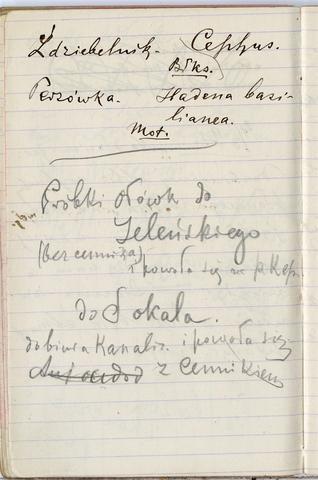 Ździebełnik. Cephus.
Błks.
Perzówka. Hadena basi-
lianea.
Mot.
Próbki ołówk do
Jeleńskiego
(bez cennika)
i powoła się na p. Kęp.
do Sokala.
do biura Kanaliz. i powoła się
z Cennikiem